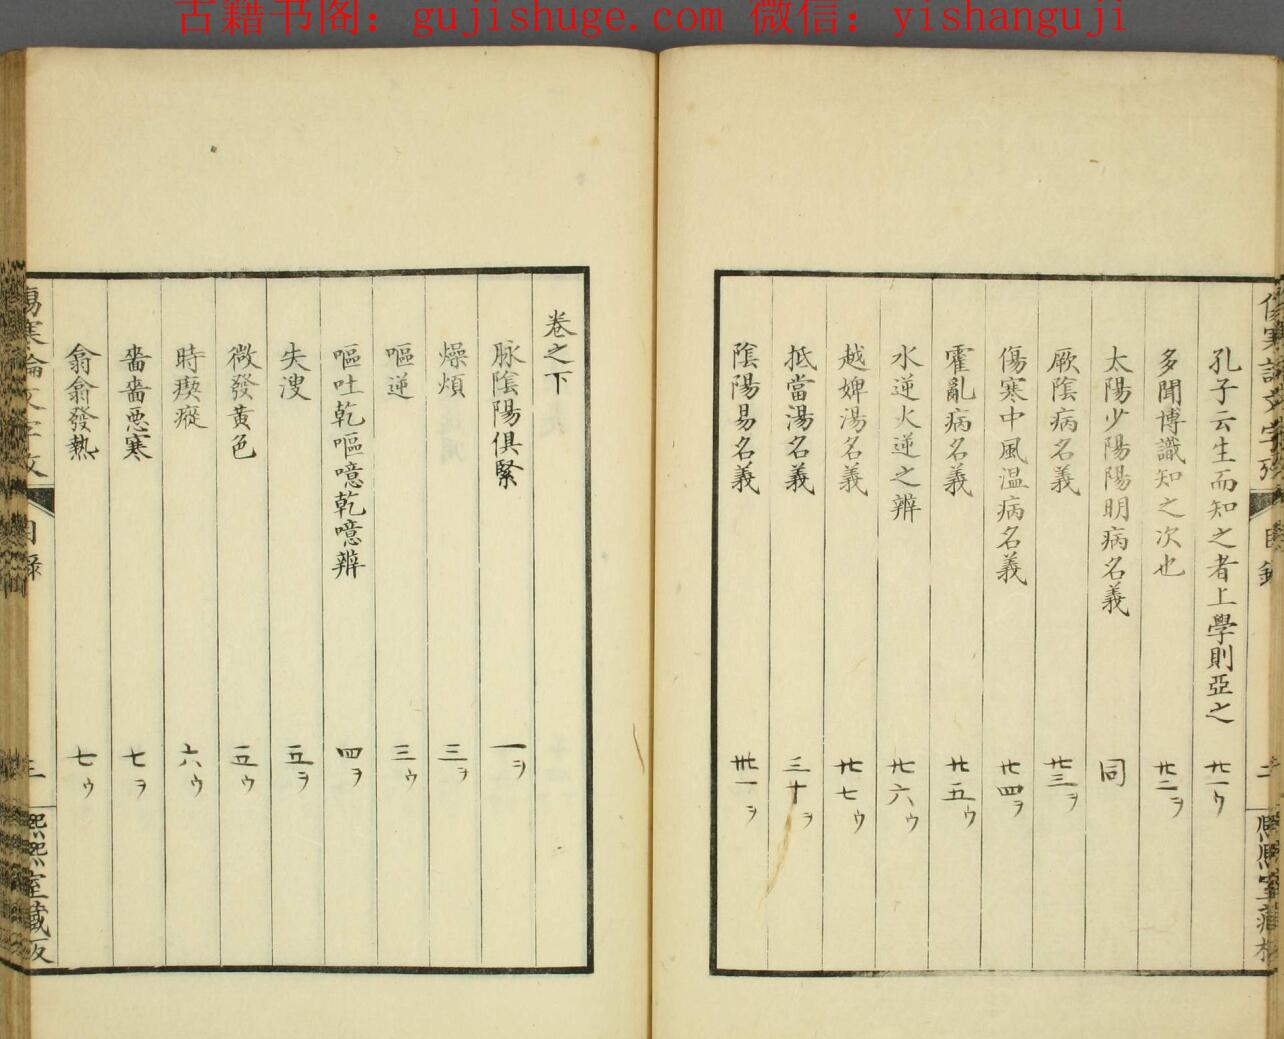 古籍书阁：gujishuge.com 微信：yishanguji
孔子云生而知之者上學則亞之 廿一ウ
多聞博識知之次也 廿二ヲ
太陽少陽陽明病名義 同
厥陰病名義 廿三ヲ
傷寒中風温病名義 廿四ヲ
霍亂病名義 廿五ウ
水逆火逆之辨 廿六ウ
越婢湯名義 廿七ウ
抵當湯名義 三十ヲ
陰陽易名義 卅一ヲ
卷之下
脉陰陽俱緊 一ヲ
燥煩 三ヲ
嘔逆 三ウ
嘔吐乾嘔噫乾噫辨 四ヲ
失溲 五ヲ
微發黄色 五ウ
時瘈瘲 六ウ
嗇嗇惡寒 七ヲ
翕翕發熱 七ウ
傷寒論文字攷 目錄 三 熙熙室藏板